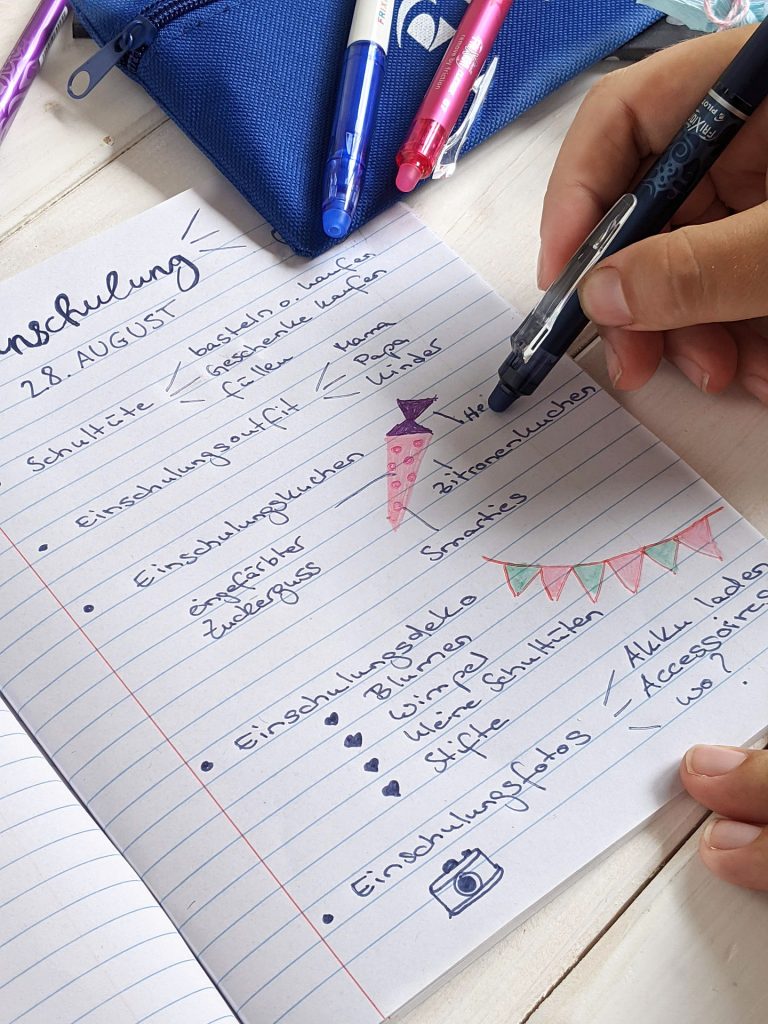 nschulung
28. AUGUST
Schultüte
basteln o. kaufen
Geschenke kaufen
füllen
Einschulungsoutfit
Mama
Papa
Kinder
Einschulungskuchen
Hei
Zitronenkuchen
Smarties
eingefärbter
Zuckerguss
Einschulungsdeko
Blumen
Wimpel
kleine Schultüten
Stifte
Einschulungsfotos
Akku laden
Accessoires
wo?
FRIXION
PILOT